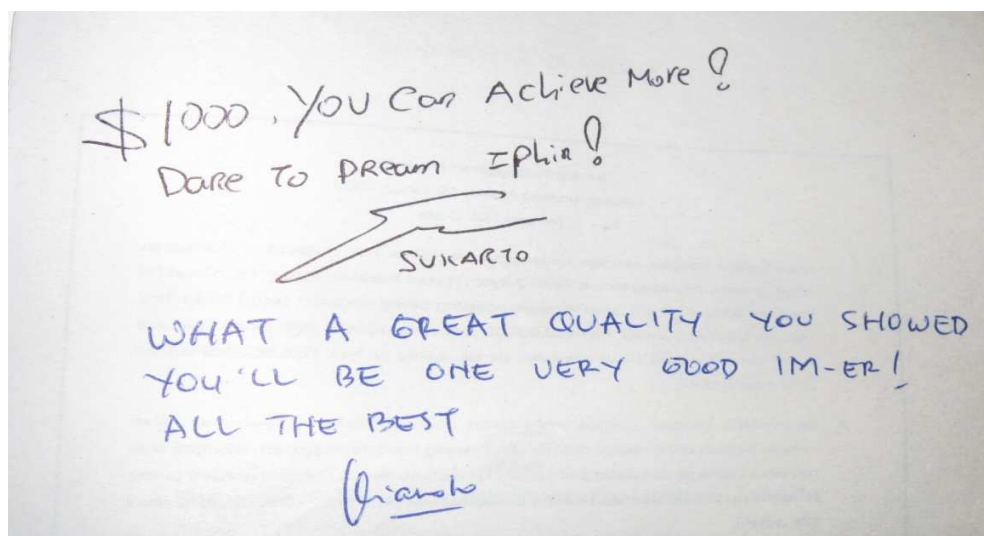 $1000. YOU Can Achieve More!
Dare To Dream Iphin!
SUKARTO
WHAT A GREAT QUALITY YOU SHOWED
YOU'LL BE ONE VERY GOOD IM-ER!
ALL THE BEST